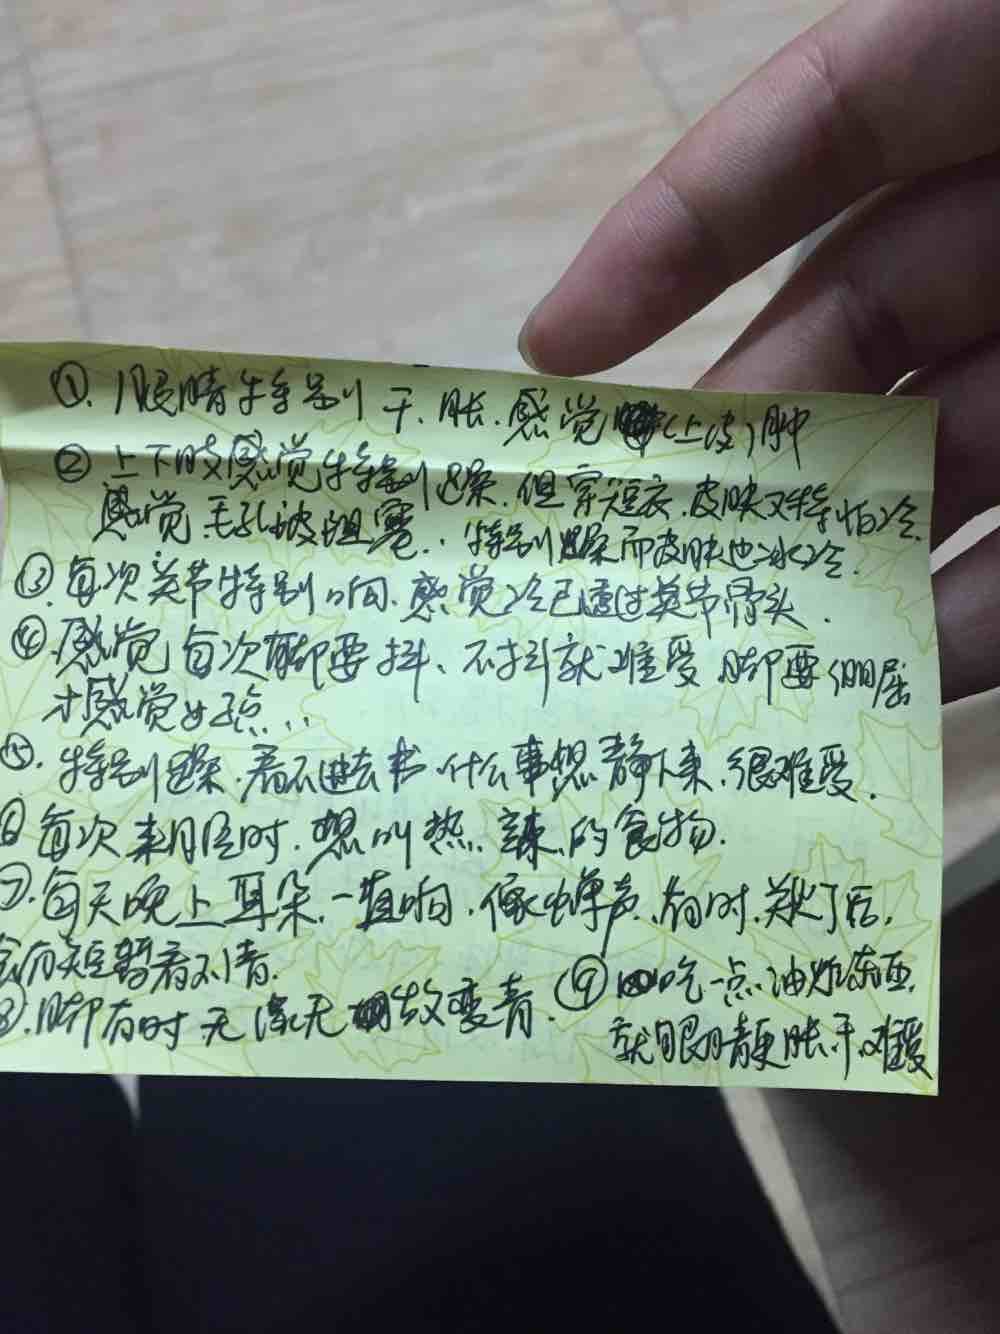 ①.眼睛特别干、胀.感觉(上皮)肿
②上下肢感觉特别躁.但穿短衣.皮肤又特怕冷.
感觉毛孔被阻塞..特别躁而皮肤也冰冷.
③.每次关节特别响.感觉冷已透过关节骨头.
④.感觉每次脚要抖、不抖就难受 脚要绷屈
才感觉好点...
⑤.特别躁.看不进去书.什么事想静下来.很难受.
⑥每次来月经时.想叫热.辣.的食物.
⑦.每天晚上耳朵.一直响.像蝉声.有时.关灯后.
会有短暂看不清.
⑧.脚有时无缘无故变青.
⑨吃一点油炸东西.
就眼睛更胀.干.难受